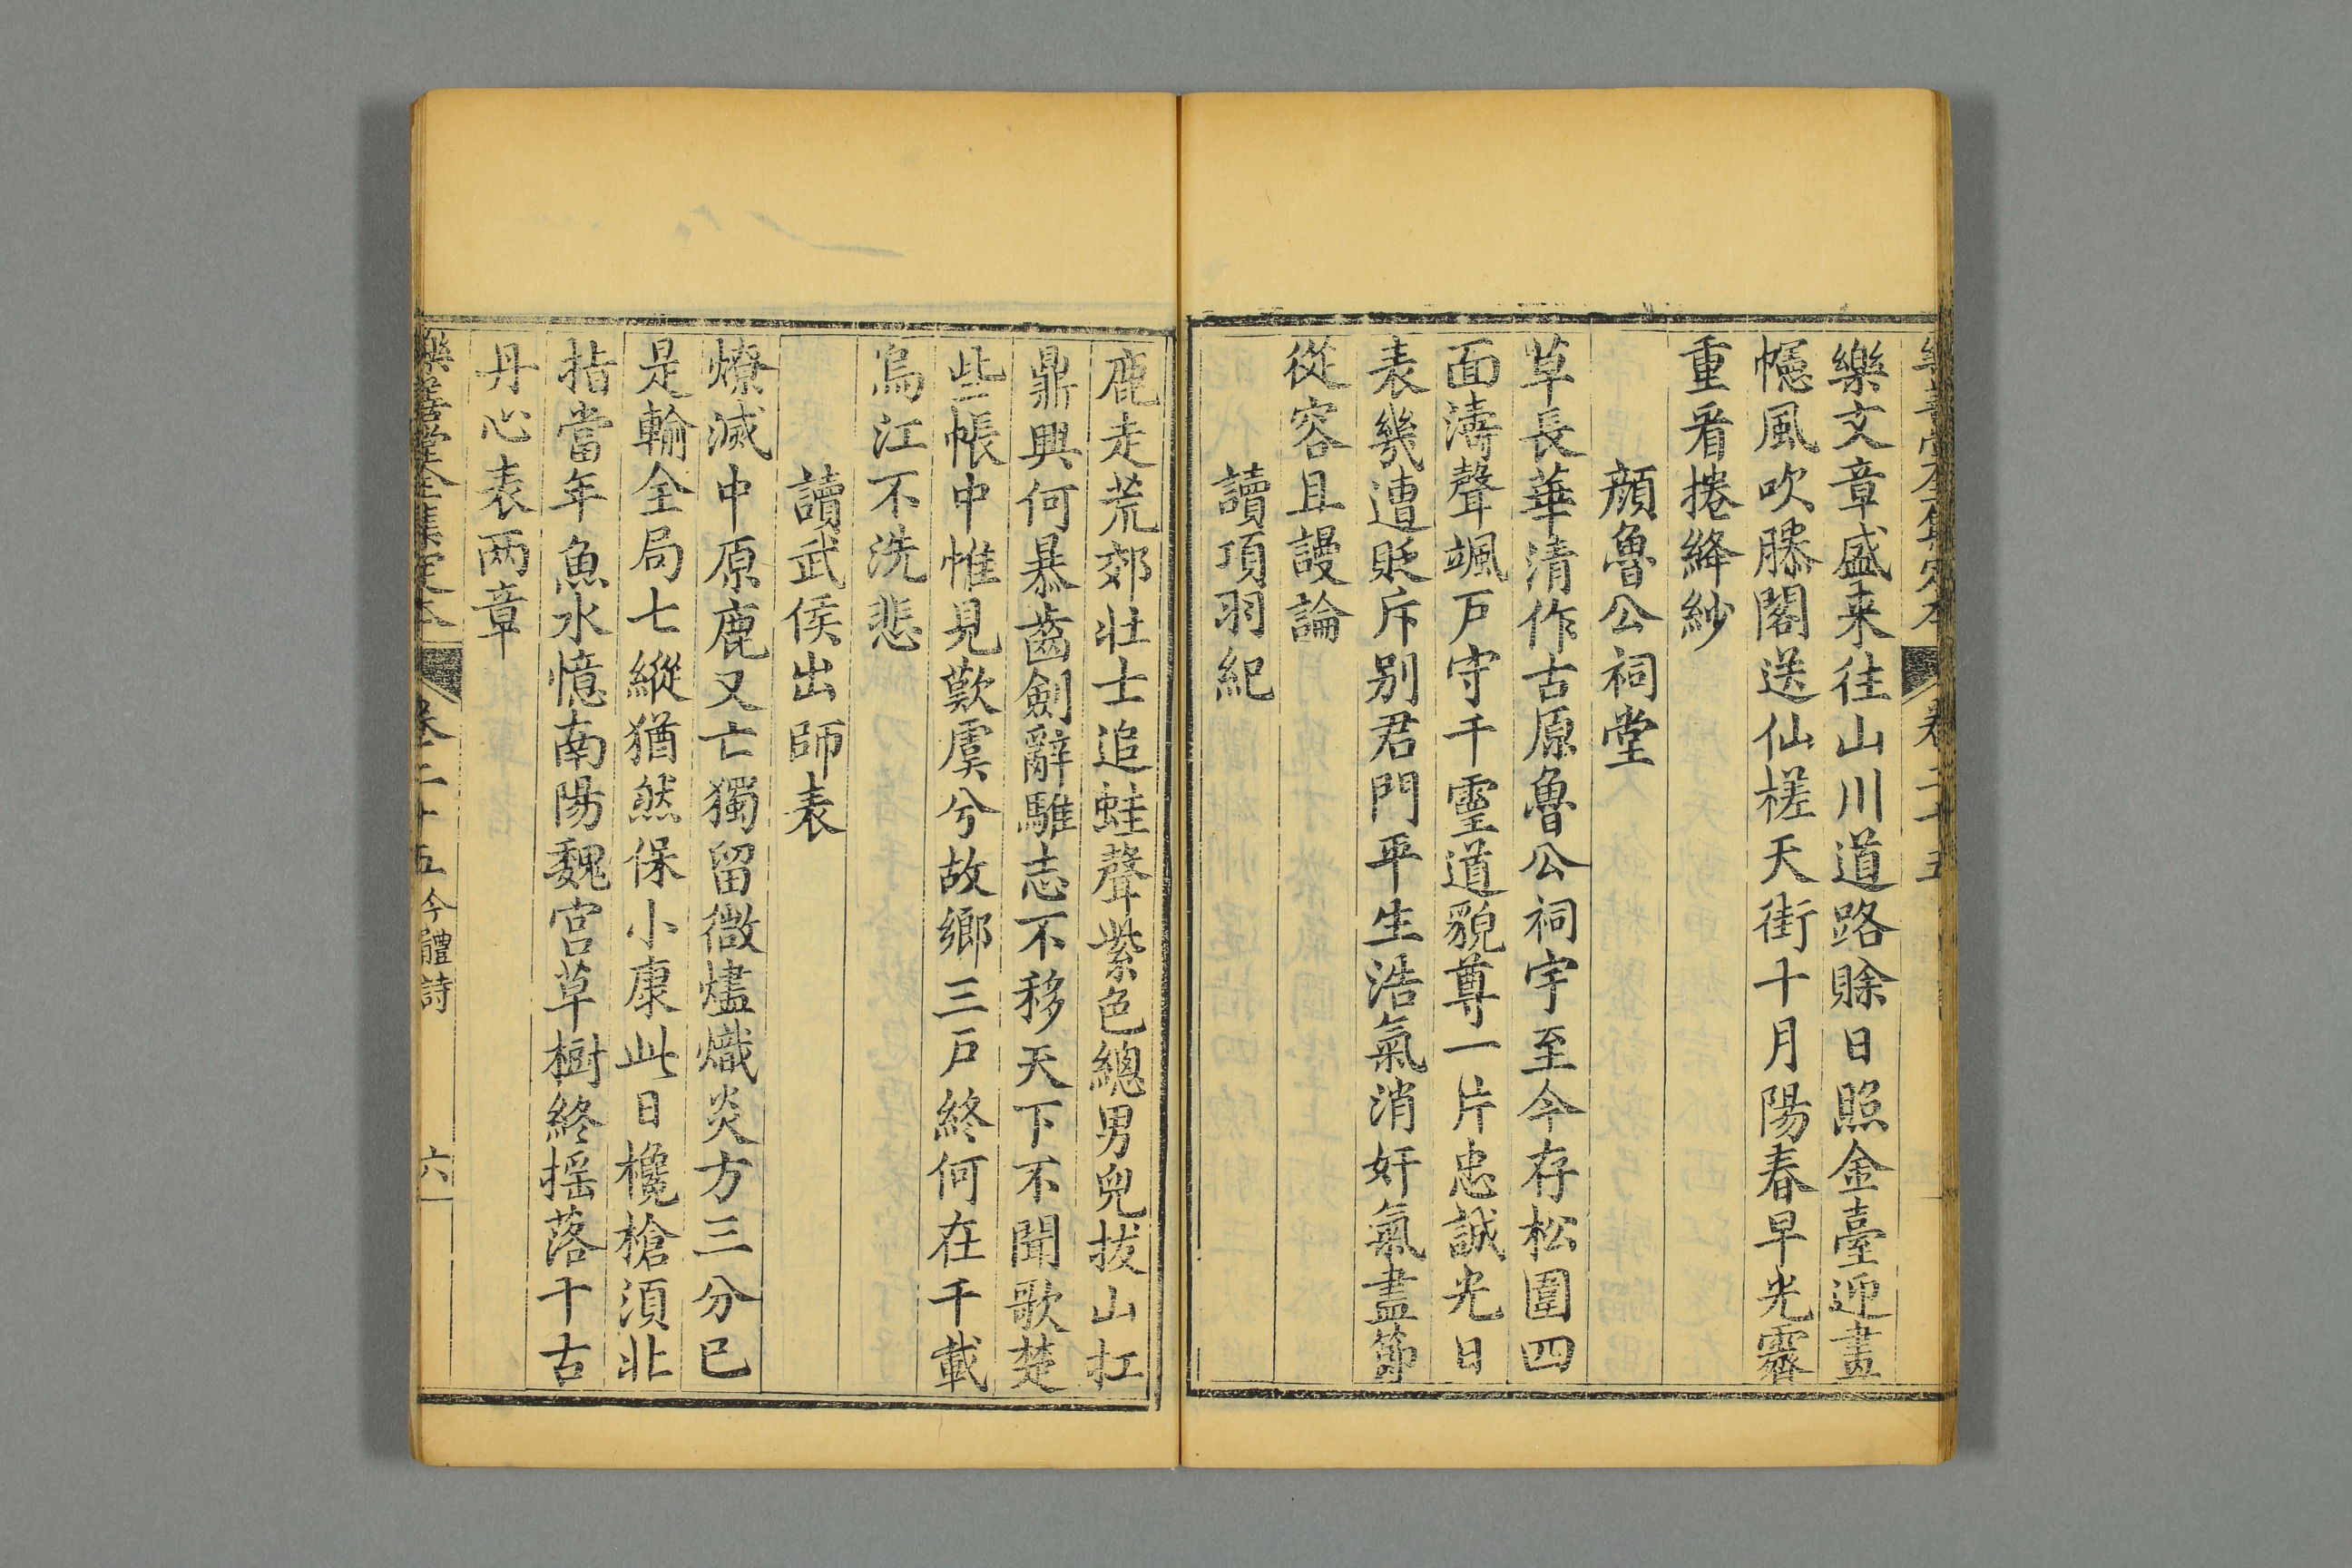 樂善堂全集定本 卷二十五
樂文章盛来往山川道路賒日照金臺迎晝
幰風吹滕閣送仙槎天街十月陽春早光霽
重看捲絳紗
顔魯公祠堂
草長華清作古原魯公祠宇至今存松圍四
面濤聲颯戸守千靈道貌尊一片忠誠光日
表幾遭貶斥别君門平生浩氣消奸氣盡節
從容且謾論
讀項羽紀
鹿走荒郊壮士追蛙聲紫色總男兒拔山扛
鼎興何暴齒劍辭騅志不移天下不聞歌楚
些帳中惟見歎虞兮故鄉三戸終何在千載
烏江不洗悲
讀武侯出師表
燎滅中原鹿又亡獨留微燼熾炎方三分已
是輸全局七縱猶然保小康此日欃槍須北
指當年魚水憶南陽魏宮草樹終摇落千古
丹心表两章
樂善堂全集定本 卷二十五 今體詩 六